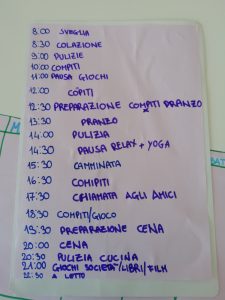 8:00 SVEGLIA
8:30 COLAZIONE
9:00 PULIZIE
10:00 COMPITI
11:00 PAUSA GIOCHI
12:00 COPITI
12:30 PREPARAZIONE COMPITI PRANZO
13:30 PRANZO
14:00 PULIZIA
14:30 PAUSA RELAX + YOGA
15:30 CAMMINATA
16:30 COMPITI
17:30 CHIAMATA AGLI AMICI
18:30 COMPITI/GIOCO
19:30 PREPARAZIONE CENA
20:00 CENA
20:30 PULIZIA CUCINA
21:00 GIOCHI SOCIETA'/LIBRI/FILM
22:30 A LETTO